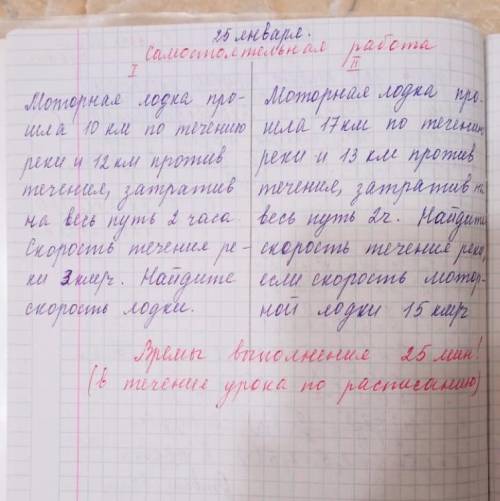 25 января.
Самостоятельная работа
I
Моторная лодка про-
шла 10 км по течению
реки и 12 км против
течения, затратив
на весь путь 2 часа
Скорость течения ре-
ки 3 км/ч. Найдите
скорость лодки.
II
Моторная лодка про-
шла 17 км по течению
реки и 13 км против
течения, затратив на
весь путь 2ч. Найдите
скорость течения реки,
если скорость мотор-
ной лодки 15 км/ч
Времы выполнения 25 мин!
(в течение урока по расписанию)